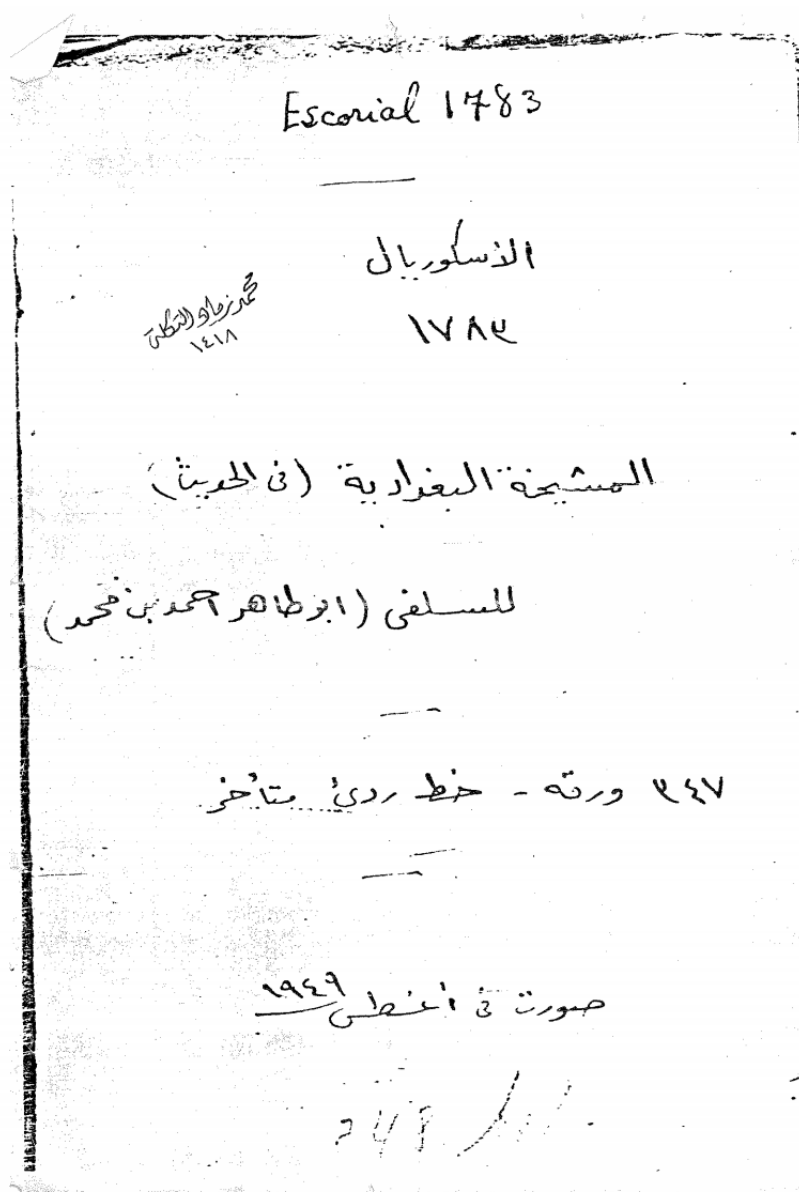 Escorial 1783
الاسكوريال
١٧٨٣
محمد زياد التكلة
١٤١٨
المشيخة البغدادية (فى الحديث)
للسلفى (ابو طاهر احمد بن محمد)
٣٤٧ ورقه - خط ردئ متأخر
صورت فى أغسطس ١٩٤٩